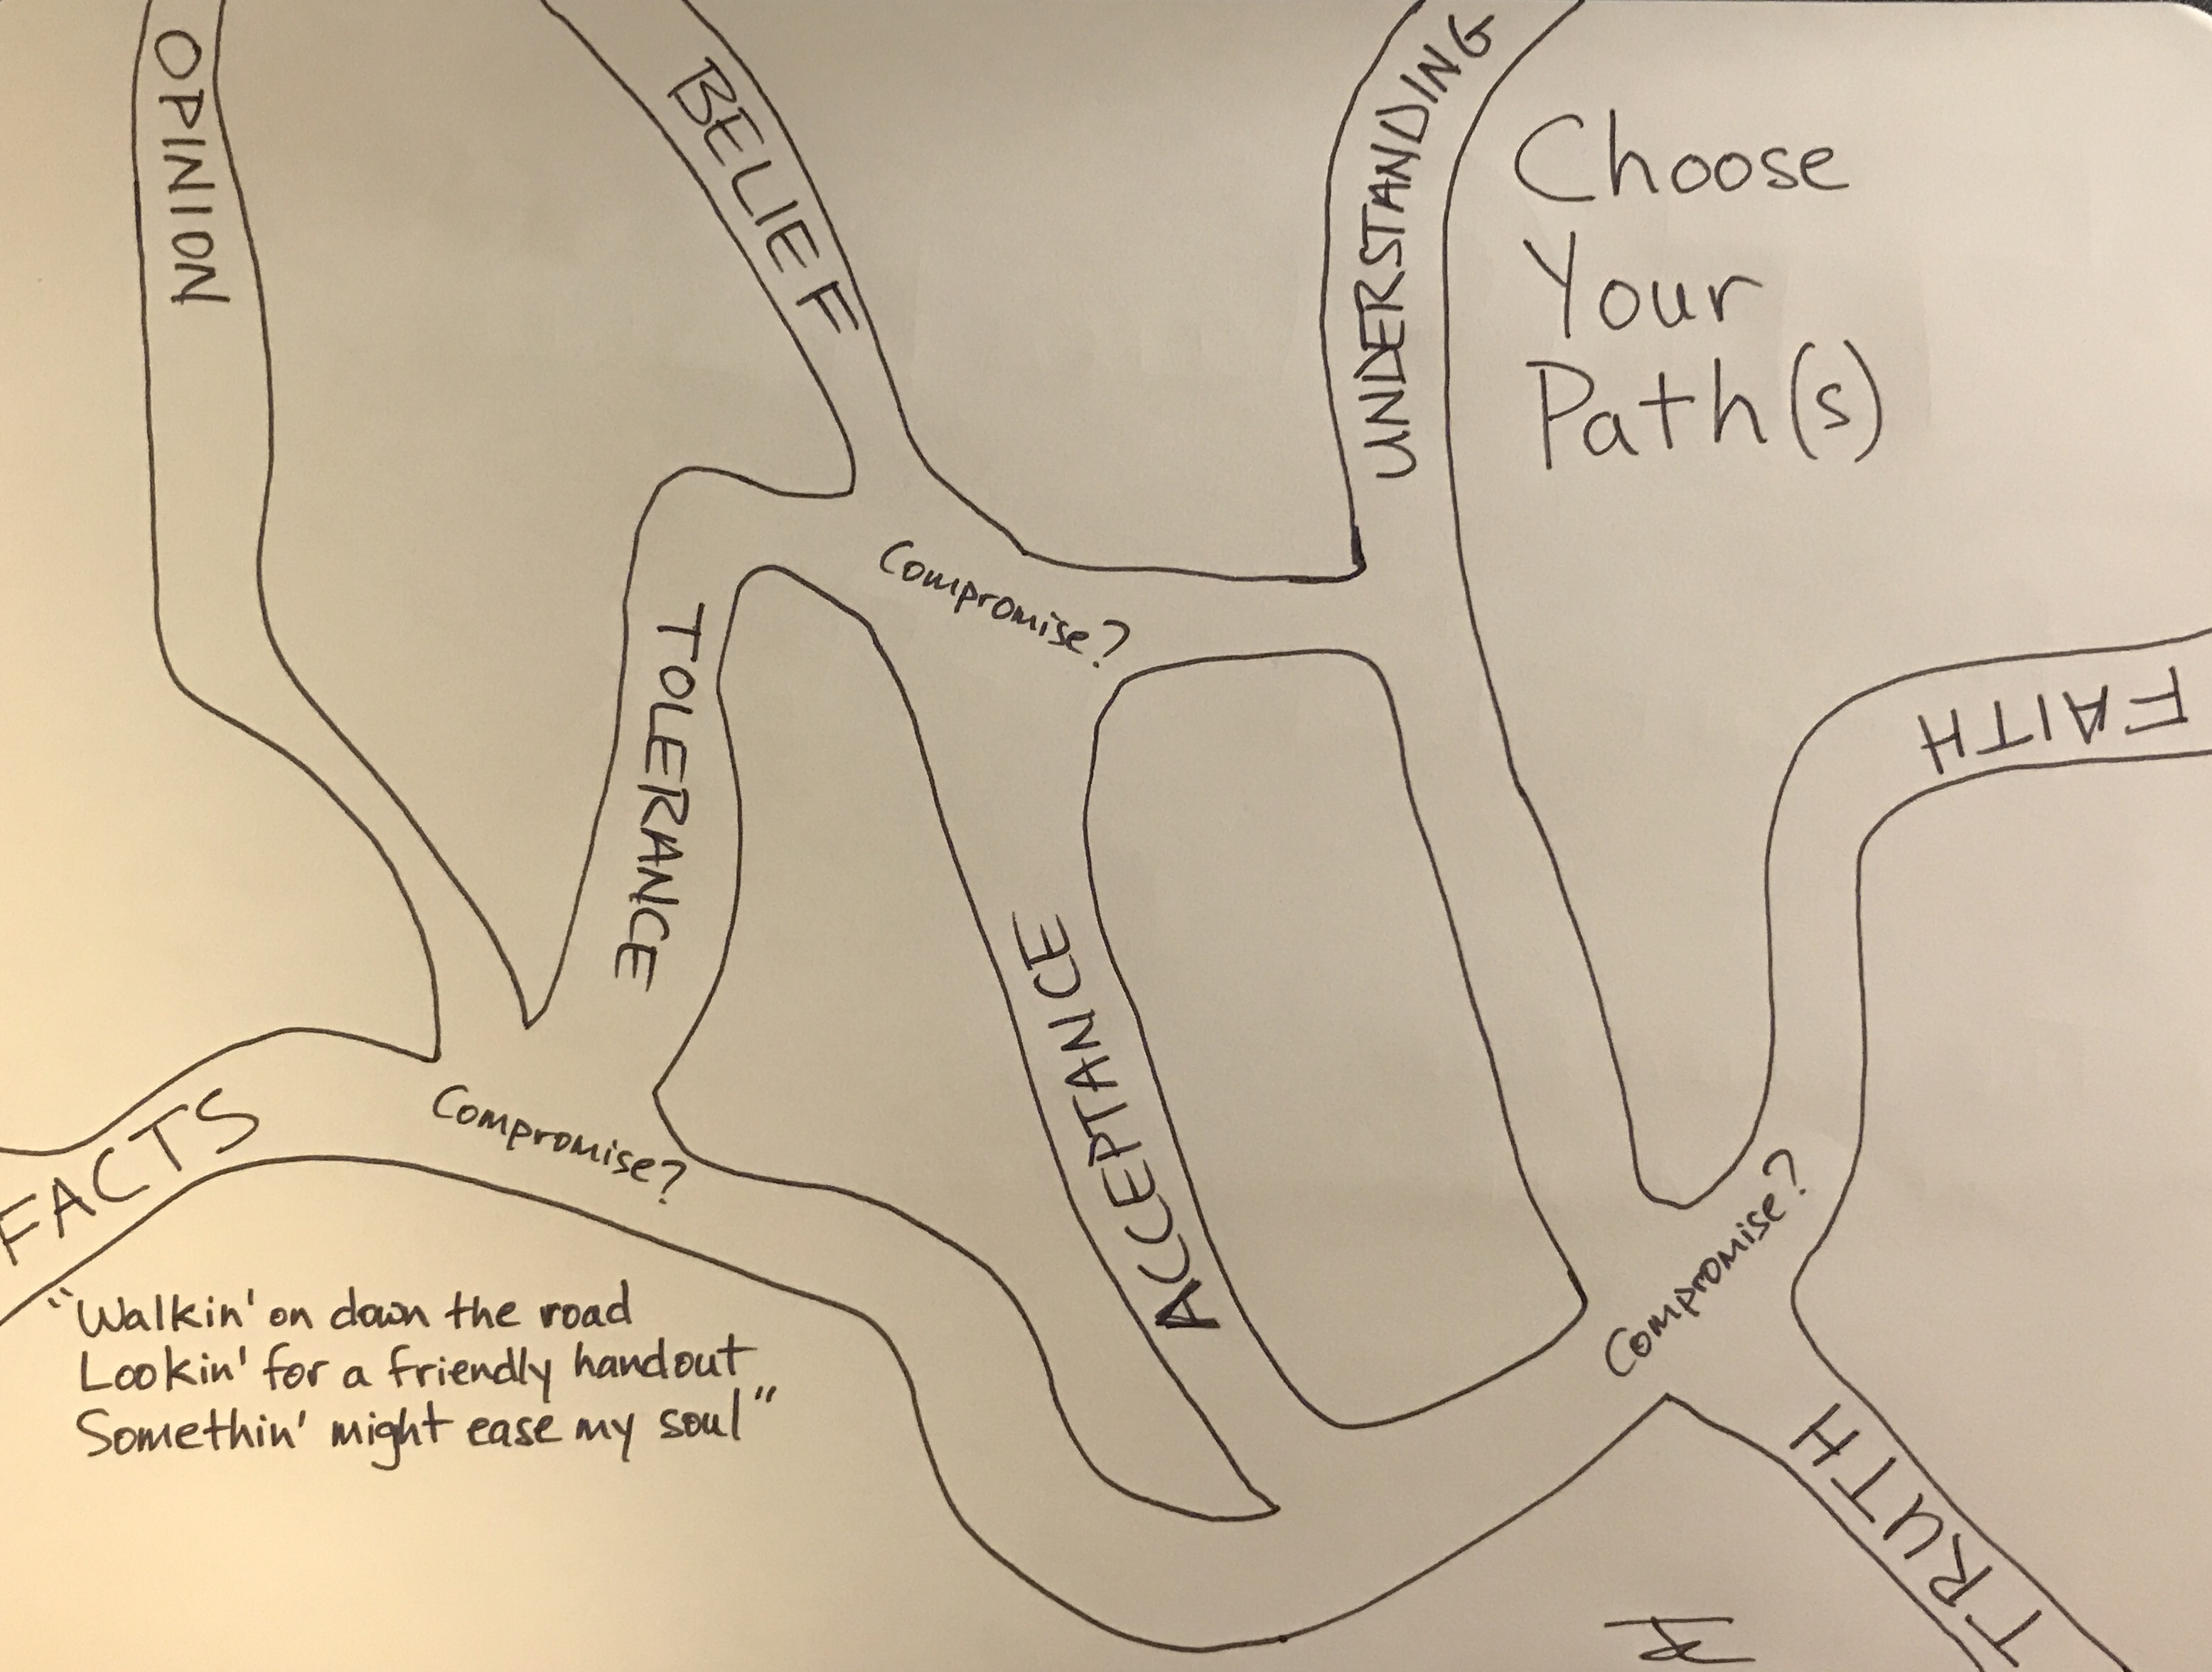 OPINION
BELIEF
UNDERSTANDING
Choose
Your
Path(s)
Compromise?
TOLERANCE
FAITH
ACCEPTANCE
FACTS
Compromise?
Compromise?
"Walkin' on down the road
Lookin' for a friendly handout
Somethin' might ease my soul"
TRUTH